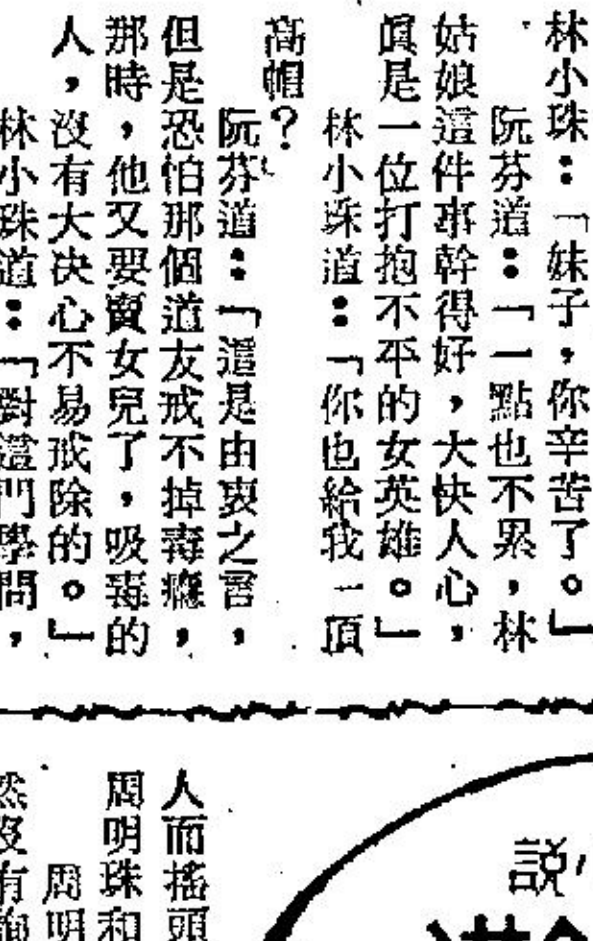 林小珠：「妹子，你辛苦了。」
阮芬道：「一點也不累，林
姑娘這件事幹得好，大快人心，
眞是一位打抱不平的女英雄。」
林小珠道：「你也給我一頂
高帽？
阮芬道：「這是由衷之言，
但是恐怕那個道友戒不掉毒癮，
那時，他又要賣女兒了，吸毒的
人，沒有大决心不易戒除的。」
林小珠道：「對這門學問，
說
人而搖頭
周明珠和
周明
然沒有